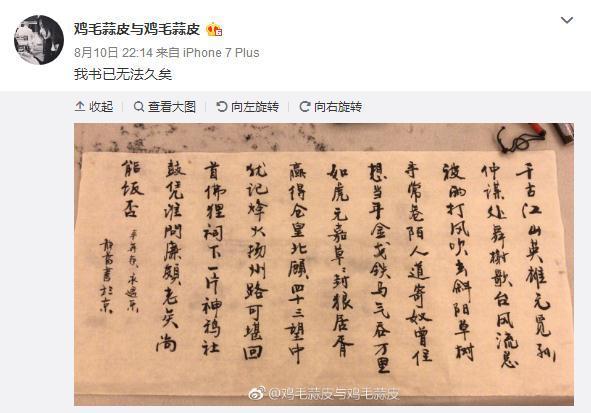 鸡毛蒜皮与鸡毛蒜皮
8月10日 22:14 来自 iPhone 7 Plus
我书已无法久矣
收起 查看大图 向左旋转 向右旋转
千古江山英雄无觅孙
仲谋处舞榭歌台风流总
被雨打风吹去斜阳草树
寻常巷陌人道寄奴曾住
想当年金戈铁马气吞万里
如虎元嘉草〻封狼居胥
赢得仓皇北顾四十三望中
犹记烽火扬州路可堪回
首佛狸祠下一片神鸦社
鼓凭谁问廉颇老矣尚
能饭否
辛弃疾 永遇乐
书於京
@鸡毛蒜皮与鸡毛蒜皮